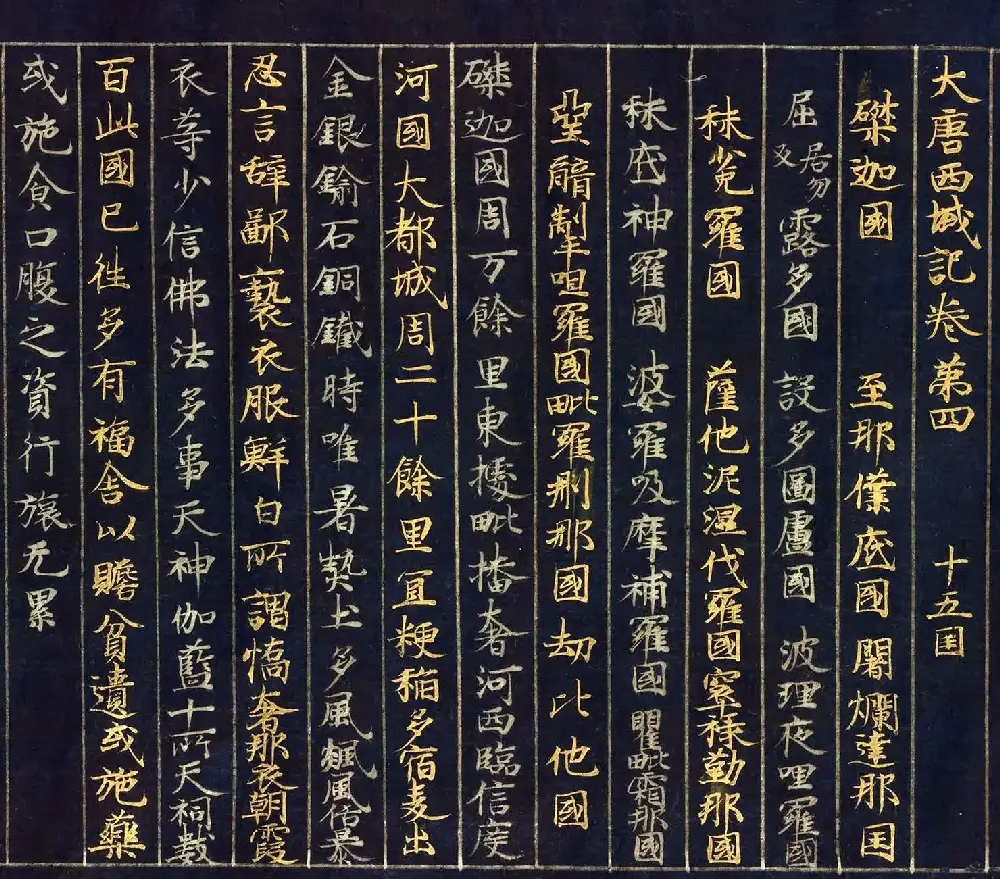 大唐西域記卷第四 十五囯
磔迦國 至那僕底國 闍爛達那囯
屈居勿反露多國 設多圖盧國 波理夜呾羅國
秣兔羅國 薩他泥濕伐羅國窣祿勤那國
秣底神羅國 婆羅吸摩補羅國 瞿毗霜那國
堊醯掣呾羅國毗羅刪那國劫比他國
磔迦國周万餘里東據毗播奢河西臨信度
河國大都城周二十餘里冝粳稲多宿麦出
金銀鍮石銅鐵時唯暑熱土多風飈風俗暴
忍言辞鄙褻衣服鮮白所謂憍奢那衣朝霞
衣等少信佛法多事天神伽藍十所天祠數
百此國已徃多有福舎以贍貧遺或施藥
或施食口腹之資行旅无累